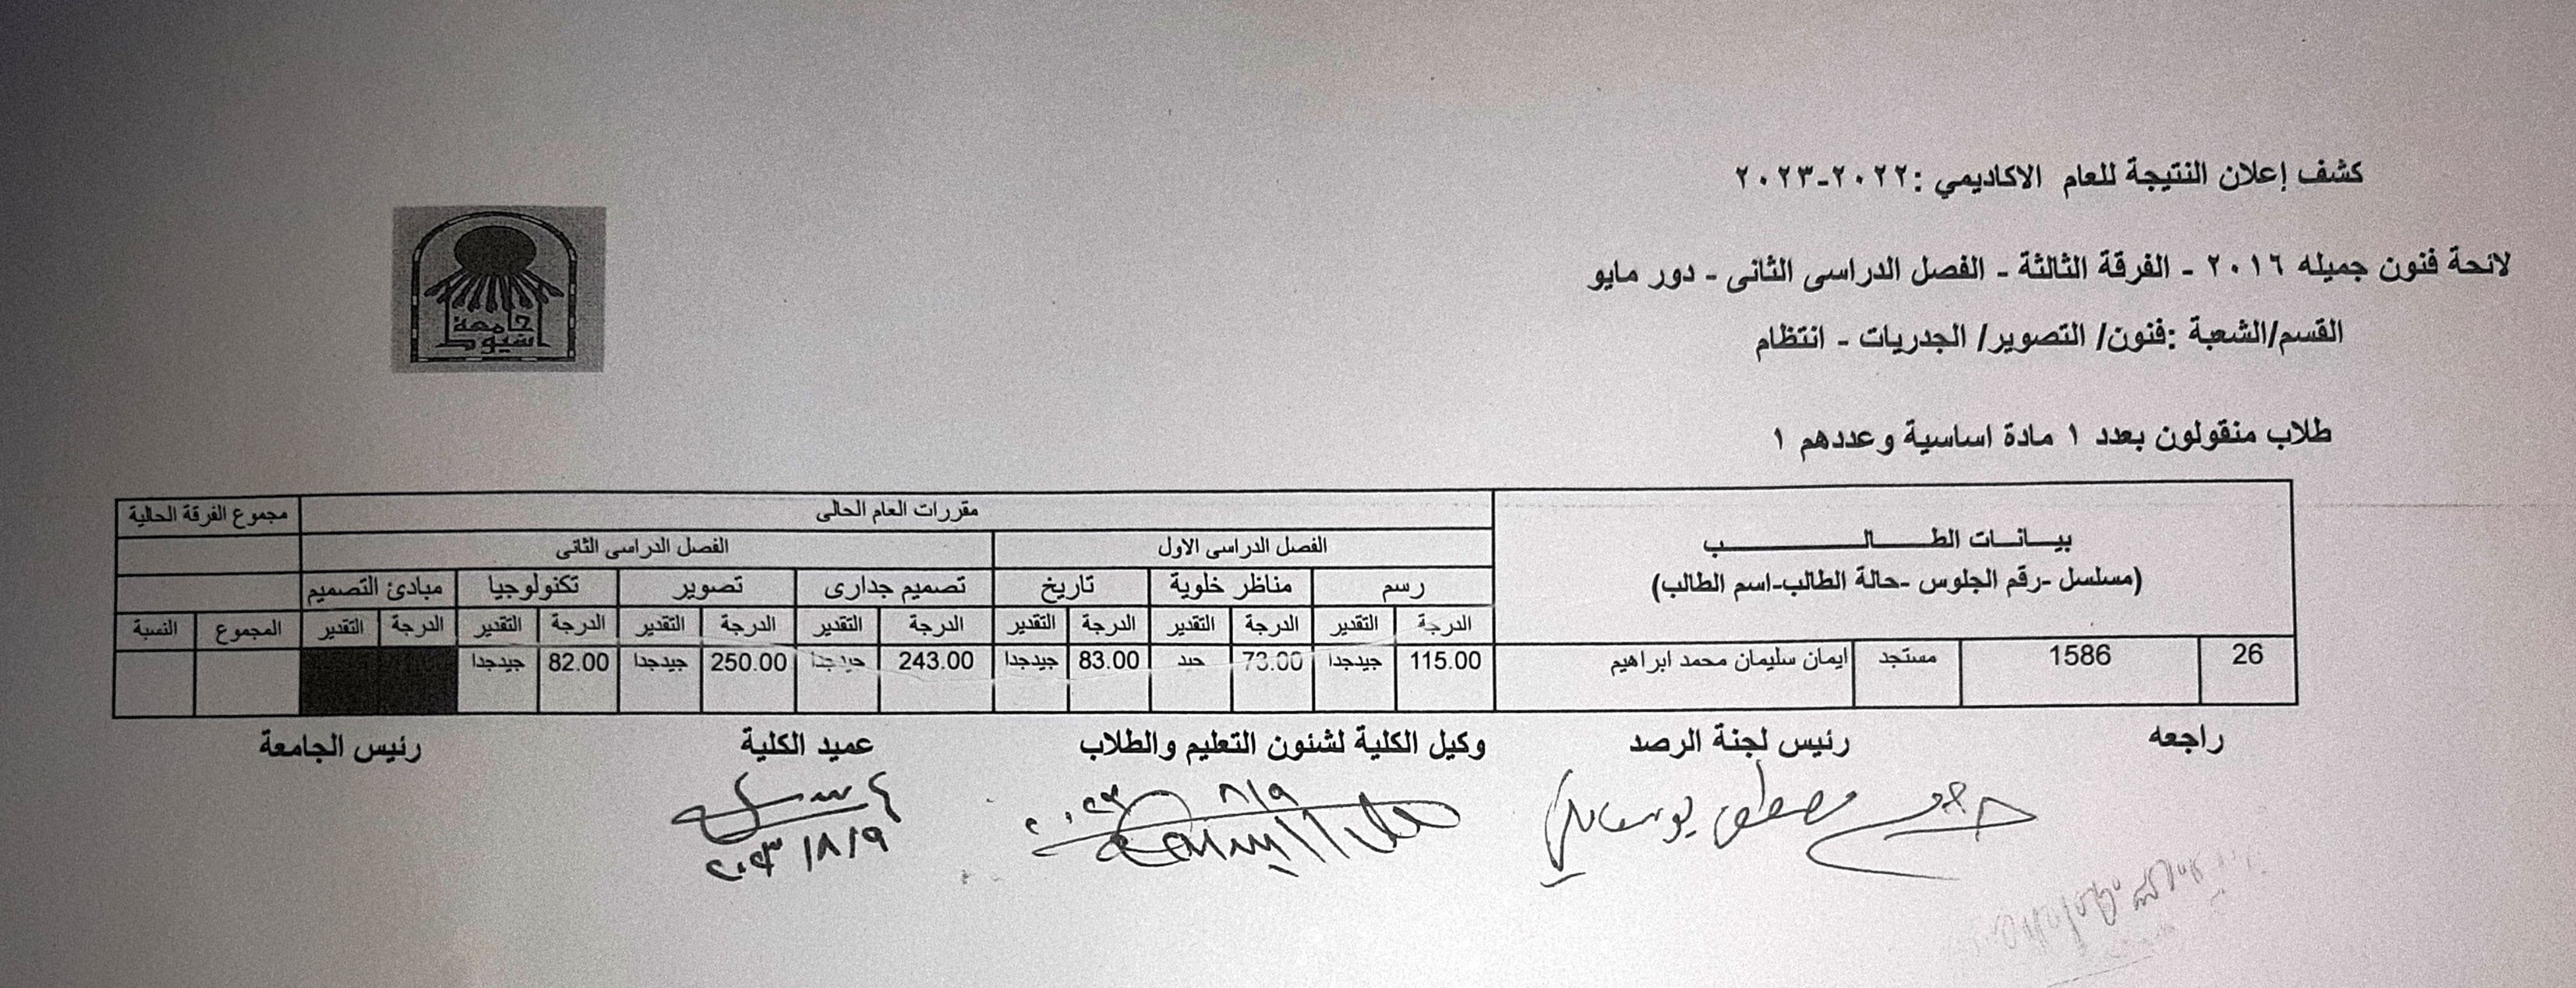 كشف إعلان النتيجة للعام الاكاديمي :٢٠٢٢-٢٠٢٣
لائحة فنون جميله ٢٠١٦ - الفرقة الثالثة - الفصل الدراسى الثانى - دور مايو
القسم/الشعبة :فنون/ التصوير/ الجدريات - انتظام
جامعة
اسيوط
طلاب منقولون بعدد ١ مادة اساسية وعددهم ١
بيـــانـــات الطــــــالـــــــــــــب
(مسلسل -رقم الجلوس -حالة الطالب-اسم الطالب)
مقررات العام الحالى
مجموع الفرقة الحالية
الفصل الدراسى الاول
الفصل الدراسى الثانى
رسم مناظر خلوية تاريخ تصميم جدارى تصوير تكنولوجيا مبادئ التصميم
الدرجة التقدير الدرجة التقدير الدرجة التقدير الدرجة التقدير الدرجة التقدير الدرجة التقدير الدرجة التقدير المجموع النسبة
26 1586 مستجد ايمان سليمان محمد ابراهيم 115.00 جيدجدا 73.00 جيد 83.00 جيدجدا 243.00 جيدجدا 250.00 جيدجدا 82.00 جيدجدا
راجعه رئيس لجنة الرصد وكيل الكلية لشئون التعليم والطلاب عميد الكلية رئيس الجامعة
٨/٩ ٢٠٢٣
٢٠٢٣/٨/٩